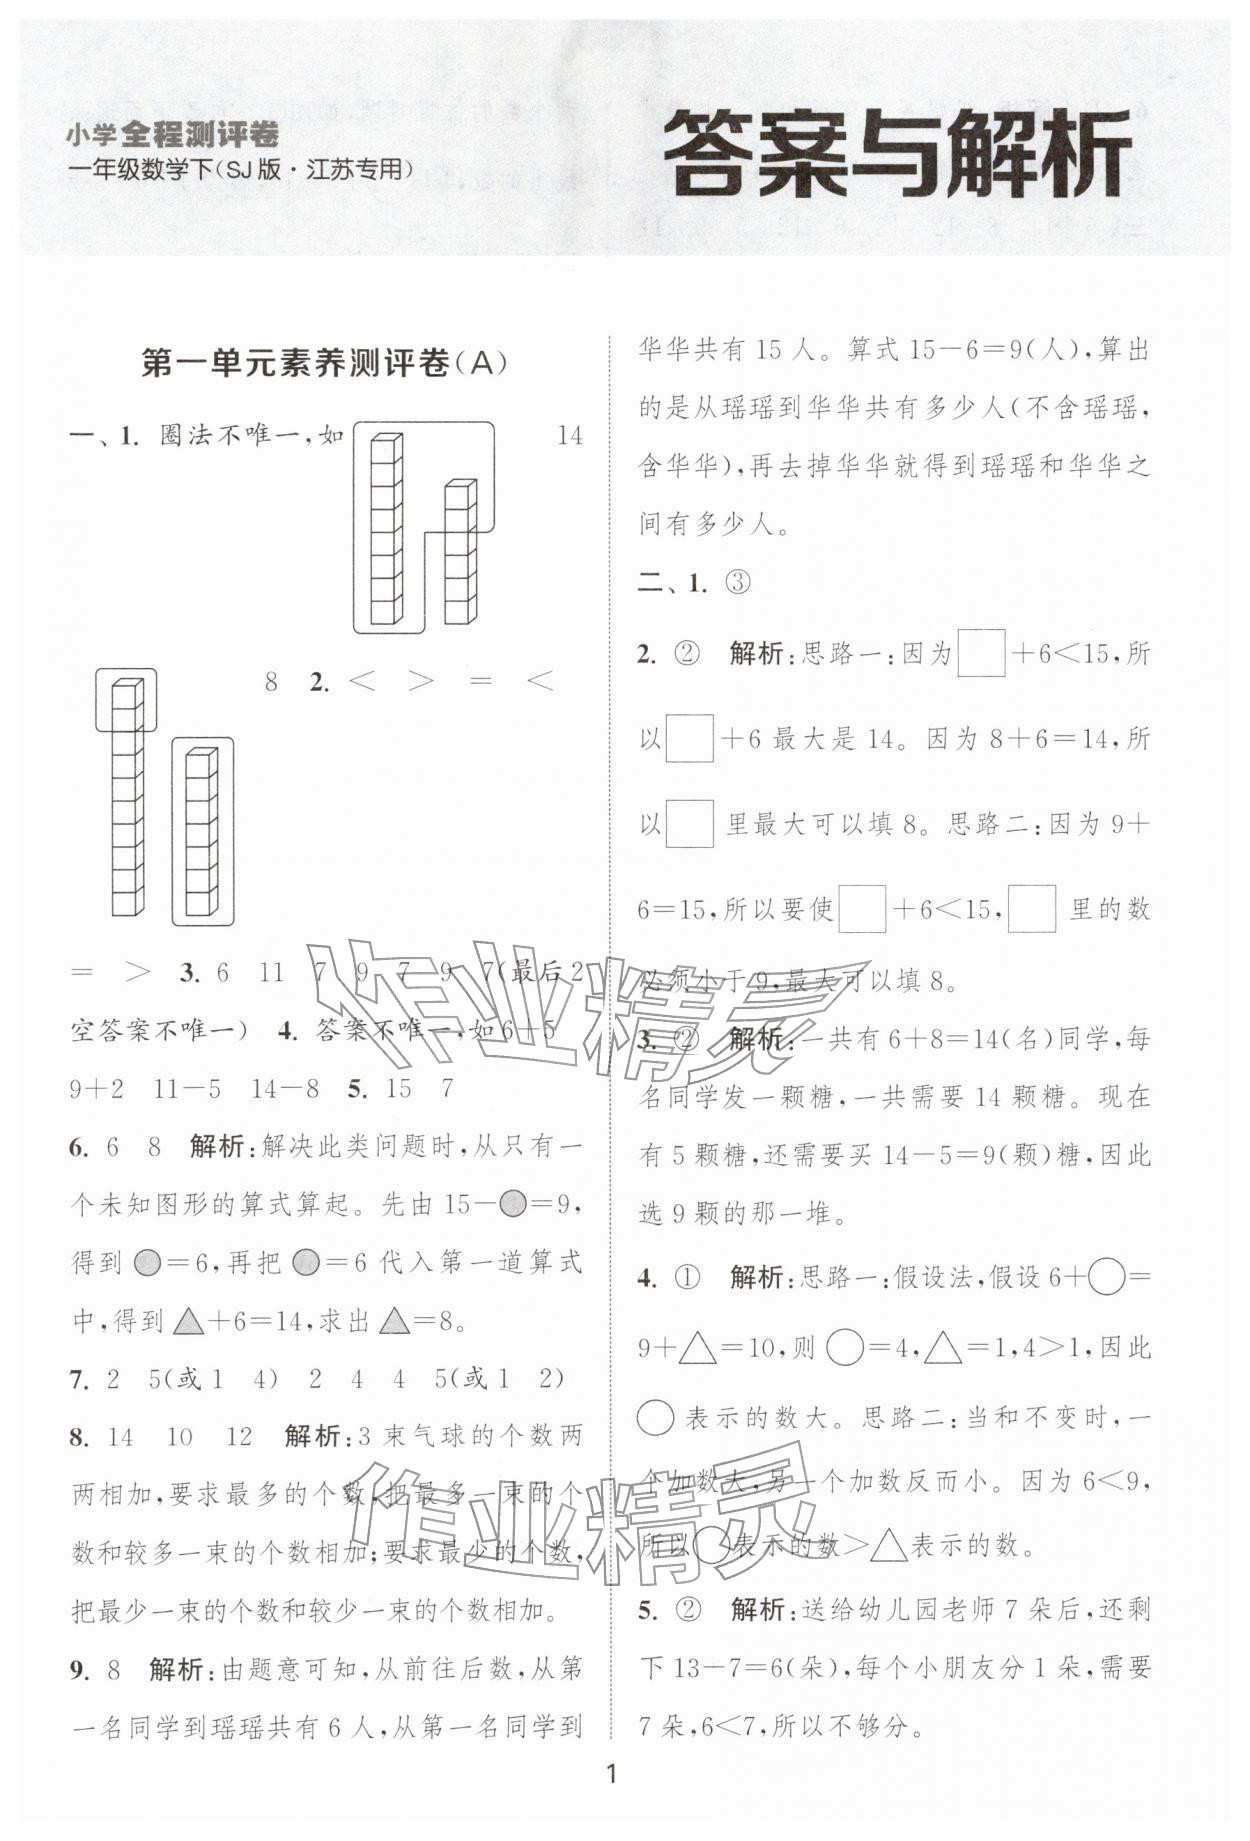 小学全程测评卷
一年级数学下(SJ版·江苏专用)
答案与解析
第一单元素养测评卷(A)
一、1. 圈法不唯一,如 14
8 2. < > = <
= > 3. 6 11 7 9 7 9 7(最后2
空答案不唯一) 4. 答案不唯一,如6+5
9+2 11-5 14-8 5. 15 7
6. 6 8 解析:解决此类问题时,从只有一
个未知图形的算式算起。先由15-●=9,
得到●=6,再把●=6代入第一道算式
中,得到▲+6=14,求出▲=8。
7. 2 5(或1 4) 2 4 4 5(或1 2)
8. 14 10 12 解析:3束气球的个数两
两相加,要求最多的个数,把最多一束的个
数和较多一束的个数相加;要求最少的个数,
把最少一束的个数和较少一束的个数相加。
9. 8 解析:由题意可知,从前往后数,从第
一名同学到瑶瑶共有6人,从第一名同学到
华华共有15人。算式15-6=9(人),算出
的是从瑶瑶到华华共有多少人(不含瑶瑶,
含华华),再去掉华华就得到瑶瑶和华华之
间有多少人。
二、1. ③
2. ② 解析:思路一:因为□+6<15,所
以□+6最大是14。因为8+6=14,所
以□里最大可以填8。思路二:因为9+
6=15,所以要使□+6<15,□里的数
必须小于9,最大可以填8。
3. ② 解析:一共有6+8=14(名)同学,每
名同学发一颗糖,一共需要14颗糖。现在
有5颗糖,还需要买14-5=9(颗)糖,因此
选9颗的那一堆。
4. ① 解析:思路一:假设法,假设6+○=
9+△=10,则○=4,△=1,4>1,因此
○表示的数大。思路二:当和不变时,一
个加数大,另一个加数反而小。因为6<9,
所以○表示的数>△表示的数。
5. ② 解析:送给幼儿园老师7朵后,还剩
下13-7=6(朵),每个小朋友分1朵,需要
7朵,6<7,所以不够分。
作业精灵
作业精灵
1